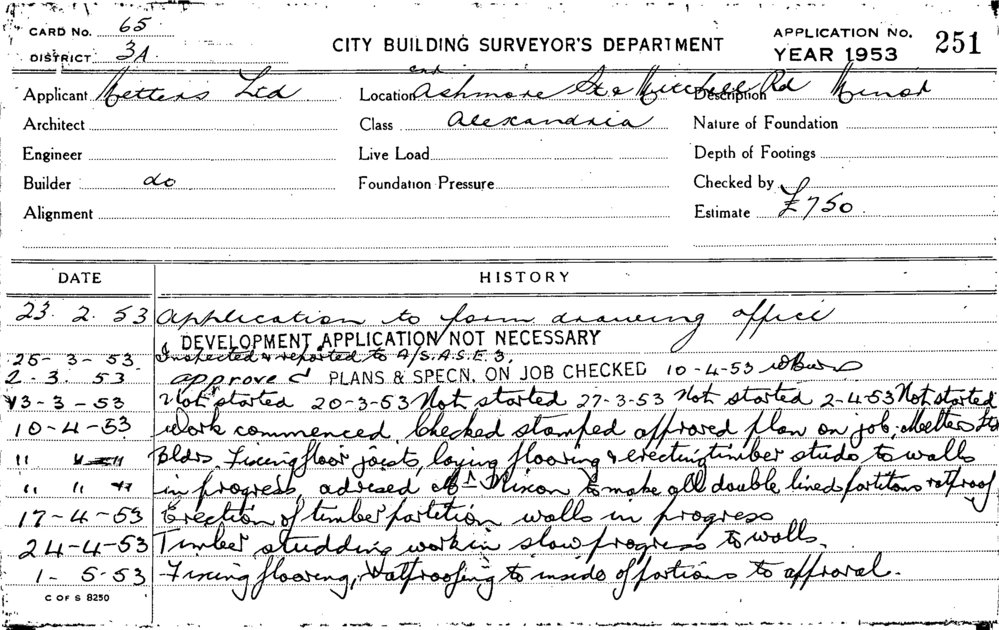 CARD No. 65
DISTRICT 3A
CITY BUILDING SURVEYOR'S DEPARTMENT
APPLICATION No. 251
YEAR 1953
Applicant Metters Ltd Location Ashmore St & Mitchell Rd Description Minor
Architect Class Alexandria Nature of Foundation
Engineer Live Load Depth of Footings
Builder do Foundation Pressure Checked by
Alignment Estimate £750
DATE HISTORY
23. 2. 53 Application to form drawing office
DEVELOPMENT APPLICATION NOT NECESSARY
25-3-53 Inspected & reported to A/S.A.S.E.3.
2.3. 53 approved PLANS & SPECN. ON JOB CHECKED 10-4-53
13-3-53 Not started 20-3-53 Not started 27-3-53 Not started 2-4-53 Not started
10-4-53 Work commenced. Checked stamped approved plan on job. Metters Ltd
11 11 11 Bldrs. Fixing floor joists, laying flooring & erecting timber studs to walls
11 11 11 in progress, advised Mr Nixon to make all double lined partitons ratproof
17-4-53 Erection of timber partition walls in progress
24-4-53 Timber studding work in slow progress to walls.
1-5-53 Fixing flooring, Ratproofing to inside of partions to approval.
C OF S 8250